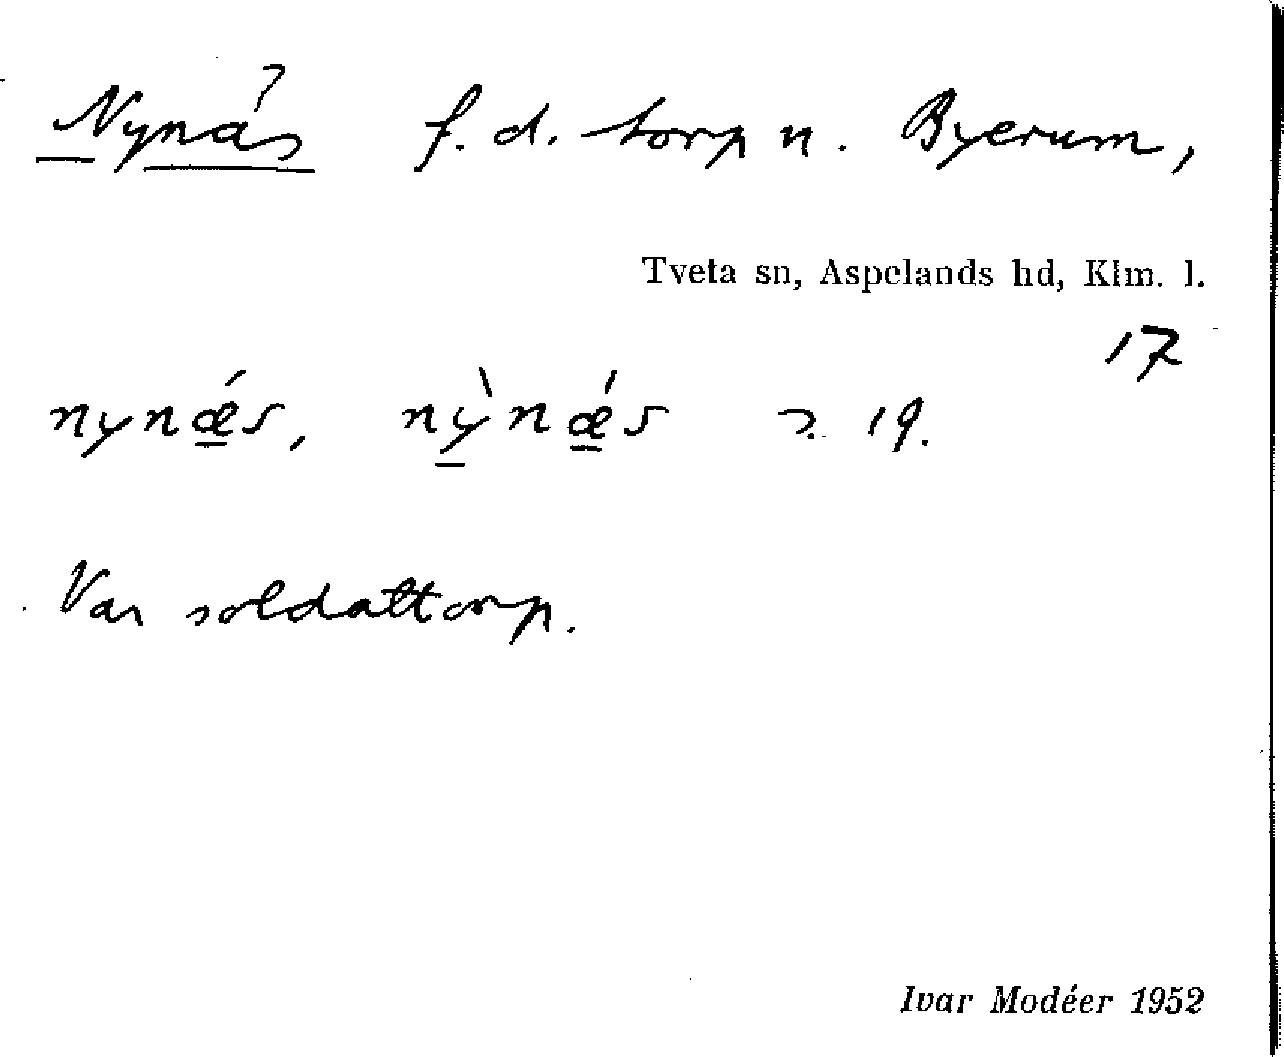 Nynäs f. d. torp u. Byerum,
Tveta sn, Aspelands hd, Klm. l.
17
nynǽs, nỳnǽs 19.
Var soldattorp.
Ivar Modéer 1952